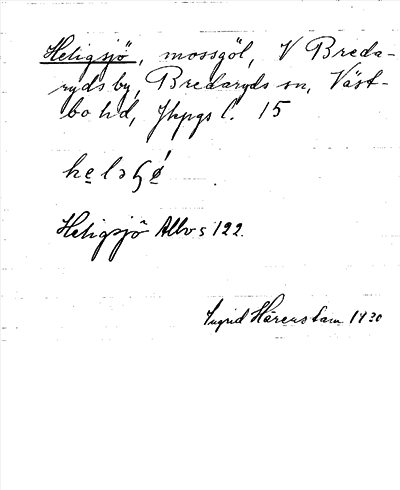 Heligsjö, mossgöl, V Breda-
ryds by, Bredaryds sn, Väst-
bo hd, Jkpgs l. 15
Heligsjö Allvs 122.
Ingrid Härenstam 1930